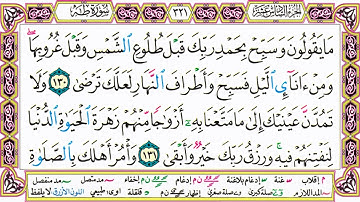 سورة طه ٣٢١ الجزء السادس عشر
مَا يَقُولُونَ وَسَبِّحْ بِحَمْدِ رَبِّكَ قَبْلَ طُلُوعِ الشَّمْسِ وَقَبْلَ غُرُوبِهَا
وَمِنْ ءَانَآئِ الَّيْلِ فَسَبِّحْ وَأَطْرَافَ النَّهَارِ لَعَلَّكَ تَرْضَىٰ ١٣٠ وَلَا
تَمُدَّنَّ عَيْنَيْكَ إِلَىٰ مَا مَتَّعْنَا بِهِ أَزْوَٰجًا مِّنْهُمْ زَهْرَةَ الْحَيَوٰةِ الدُّنْيَا
لِنَفْتِنَهُمْ فِيهِ وَرِزْقُ رَبِّكَ خَيْرٌ وَأَبْقَىٰ ١٣١ وَأْمُرْ أَهْلَكَ بِالصَّلَوٰةِ